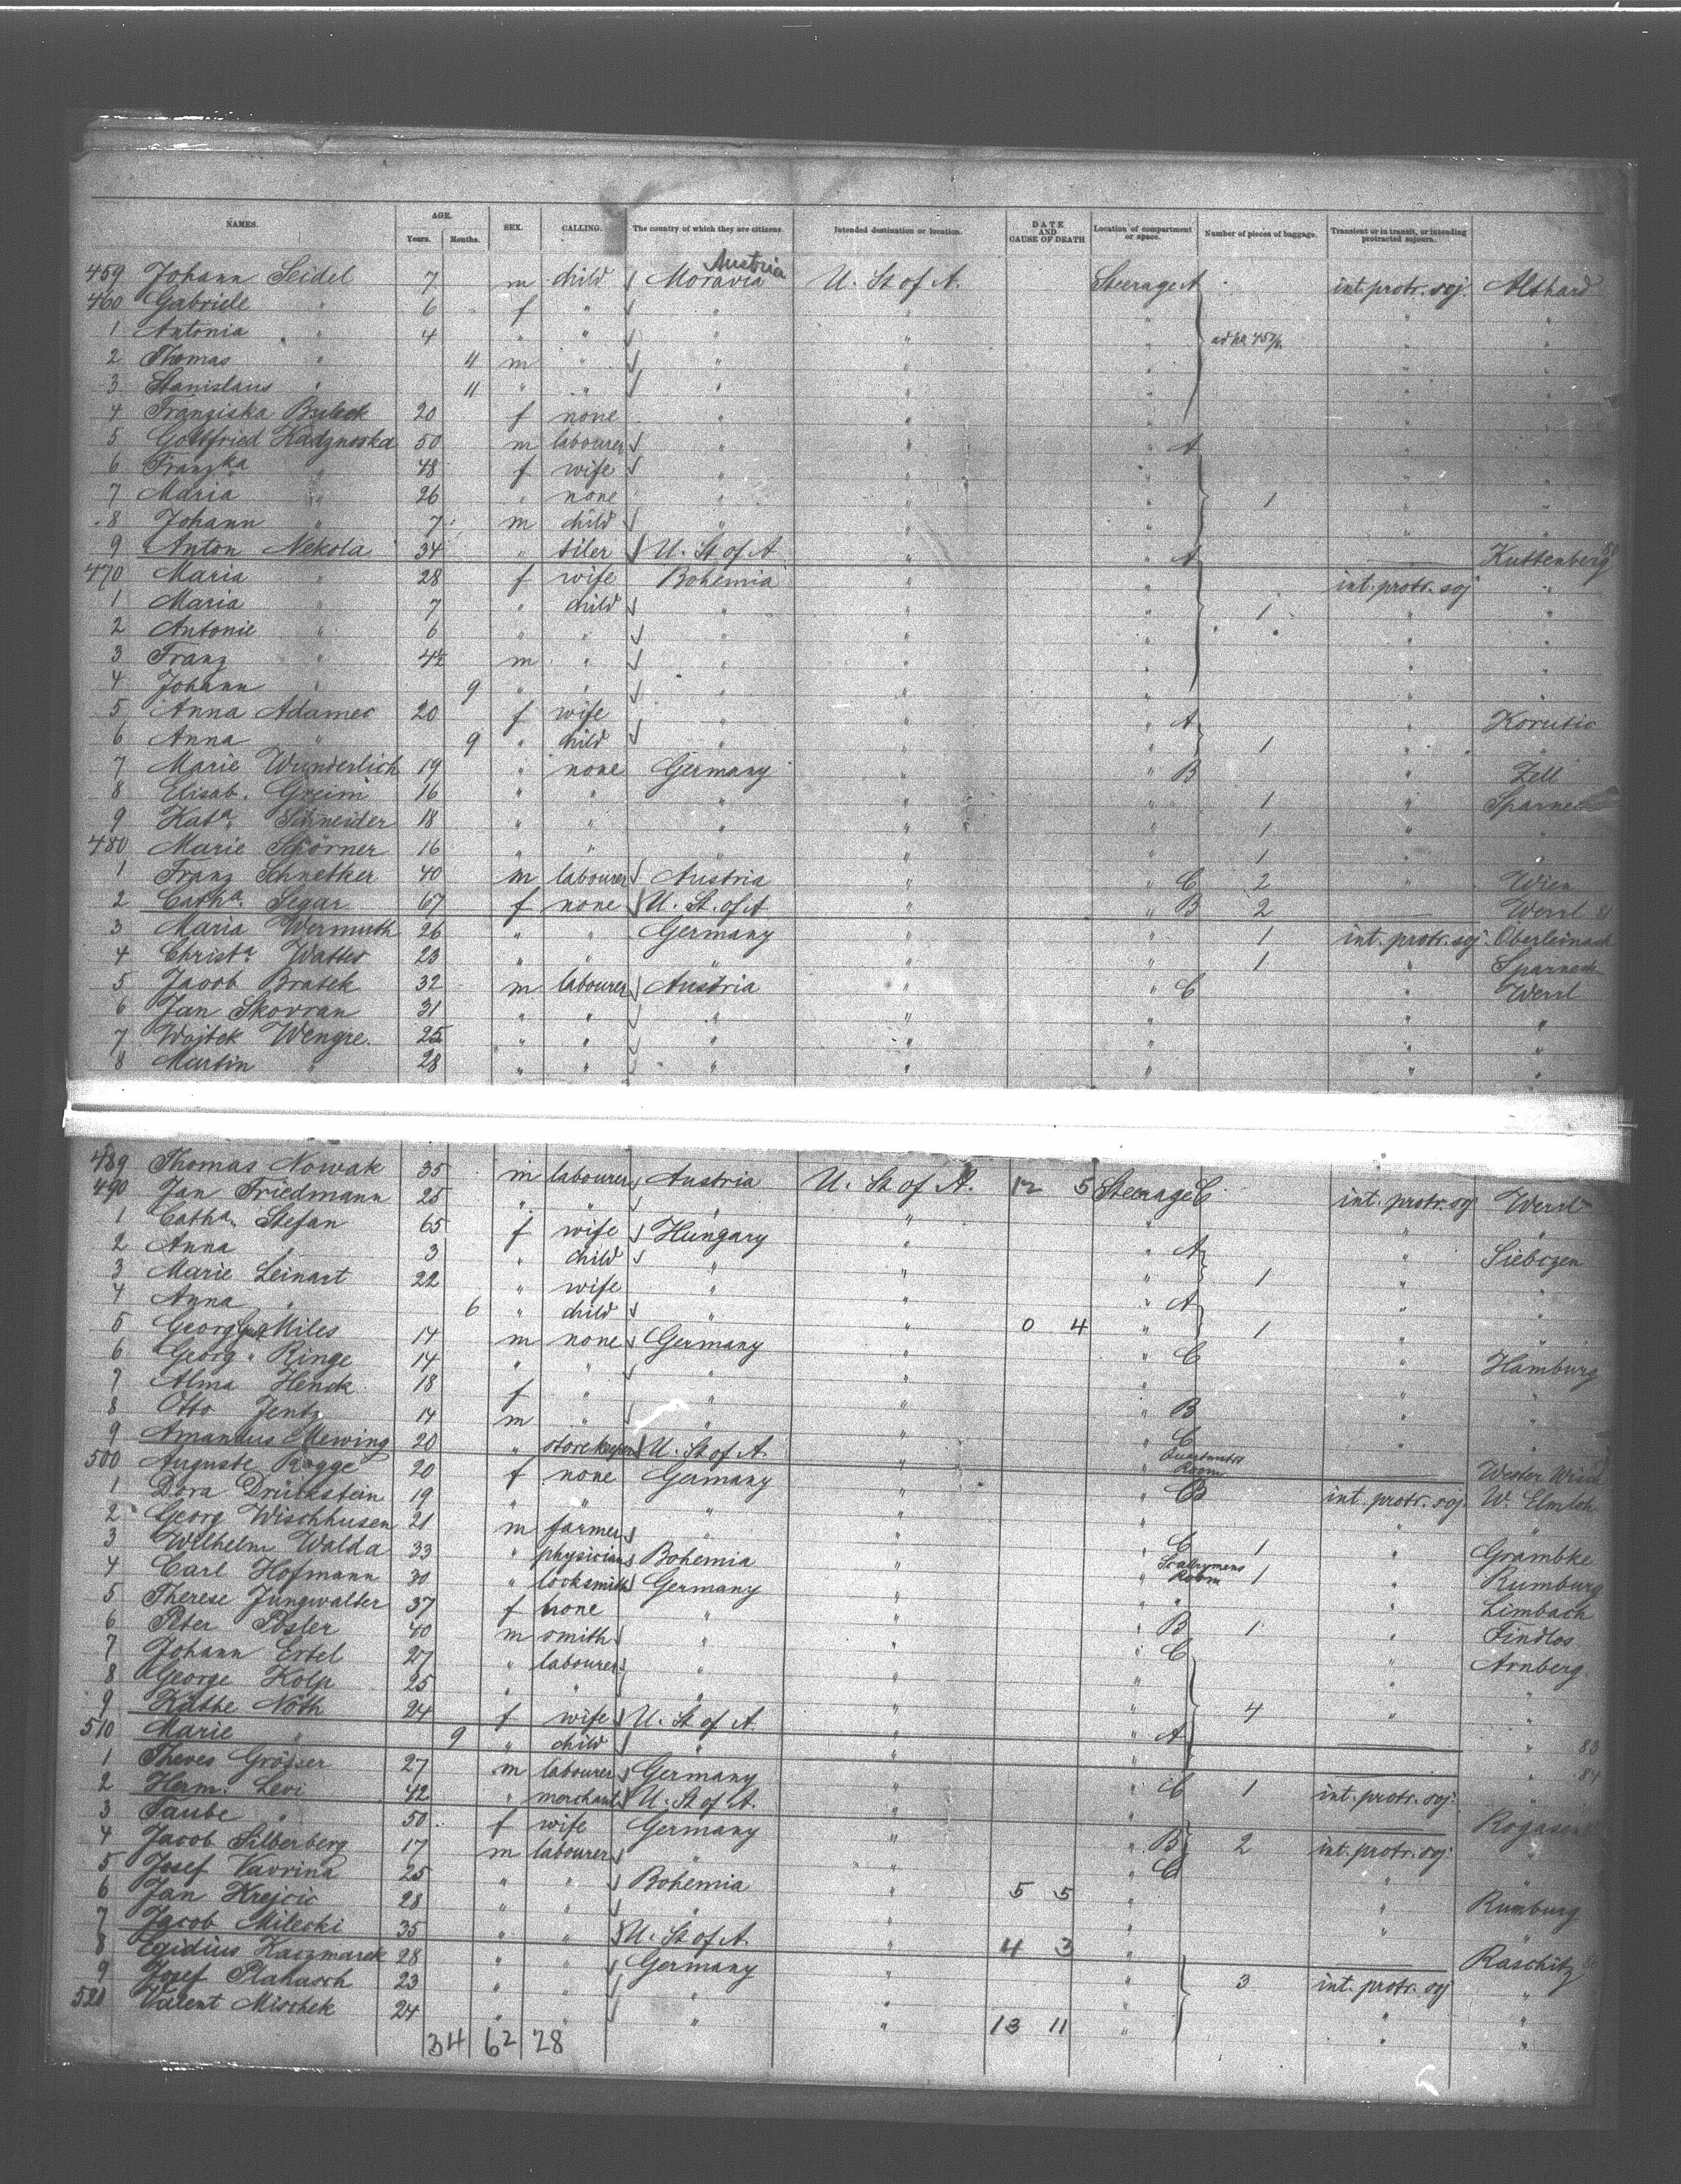 NAMES. AGE. Years. Months. SEX. CALLING. The country of which they are citizens. Intended destination or location. DATE AND CAUSE OF DEATH Location of compartment or space. Number of pieces of baggage. Transient or in transit, or intending protracted sojourn.
459 Johann Seidel 7 m child Moravia Austria U. St of A. Steerage A int. protr. soj. Althard
460 Gabriele " 6 f " " " " " "
1 Antonia " 4 " " " " " " "
2 Thomas " 11 m " " " " " "
3 Stanislaus " 11 " " " " " " "
4 Franziska 20 f none " " " " "
5 Gottfried 50 m labourer " " " A " "
6 Franzka " 48 f wife " " " " "
7 Maria " 26 " none " " " 1 " "
8 Johann " 7 m child " " " " "
9 Anton Nekola 34 " tiler U. St of A. " " A — Kuttenberg
470 Maria " 28 f wife Bohemia " " int. protr. soj "
1 Maria " 7 " child " " " 1 " "
2 Antonie " 6 " " " " " " "
3 Franz " 4½ m " " " " " "
4 Johann " 9 " " " " " " "
5 Anna Adamec 20 f wife " " " A " Korutic
6 Anna " 9 " child " " " 1 " "
7 Marie Wunderlich 19 " none Germany " " B " Zell
8 Elisab. Greim 16 " " " " " 1 "
9 Kata. Schneider 18 " " " " " 1 " "
480 Marie Spörner 16 " " " " " 1 " "
1 Franz Schnetker 40 m labourer Austria " " C 2 " Wien
2 Catha. Segar 67 f none U. St. of A " " B 2 — Werrl 81
3 Maria Wermuth 26 " " Germany " " 1 int. protr. soj. Oberleinach
4 Christa. Watter 23 " " " " " 1 "
5 Jacob Bratek 32 m labourer Austria " " C " Werrl
6 Jan Skovran 31 " " " " " " "
7 Wojtek Wengre. 25 " " " " " " "
8 Martin " 28 " " " " " " "
489 Thomas Nowak 35 m labourer Austria U. St of A. 12 5 Steerage C int. protr. soj Werrl
490 Jan Friedmann 25 " " " " " " "
1 Catha. Stefan 65 f wife Hungary " " A " Siebozen
2 Anna " 3 " child " " " 1 " "
3 Marie Leinart 22 " wife " " " A " "
4 Anna " 6 " child " " 0 4 " 1 " "
5 Georg Miles 14 m none Germany " " C " Hamburg
6 Georg Ringe 14 " " " " " " "
7 Alma Henck 18 f " " " " B " "
8 Otto Jentz 14 m " " " " C " "
9 Amandus Mewing 20 " storekeeper U. St of A. " " Room —
500 Auguste Rogge 20 f none Germany " " B int. protr. soj.
1 Dora Drückstein 19 " " " " " " "
2 Georg Wischhusen 21 m farmer " " " C 1 " Grambke
3 Wilhelm Walda 33 " physician Bohemia " " Room 1 " Rumburg
4 Carl Hofmann 30 " locksmith Germany " " " " Limbach
5 Therese Jungwalter 37 f none " " " B 1 " Findlos
6 Peter Posler 40 m smith " " " C " Arnberg.
7 Johann Ertel 27 " labourer " " " " "
8 George Kolp 25 " " " " " 4 " "
9 Käthe Nöth 24 f wife U. St of A. " " A — " 83
510 Marie " 9 " child " " " — " 84
1 Theves Grösser 27 m labourer Germany " " C 1 int. protr. soj. "
2 Herm. Levi 42 " merchant U. St of A. " " — Rogasen
3 Taube " 50 f wife Germany " " B 2 int. protr. soj. "
4 Jacob Silberberg 17 m labourer " " " C " "
5 Josef Vavrina 25 " " Bohemia " 5 5 " " Rumburg
6 Jan Krejcic 28 " " " " " " "
7 Jacob Milecki 35 " " U. St of A. " 4 3 " — Raschitz
8 Egidius Kaczmarek 28 " " Germany " " 3 int. protr. soj "
9 Josef Plahasch 23 " " " " " " "
520 Valent Mischek 24 " " " " 13 11 " " "
34 62 28